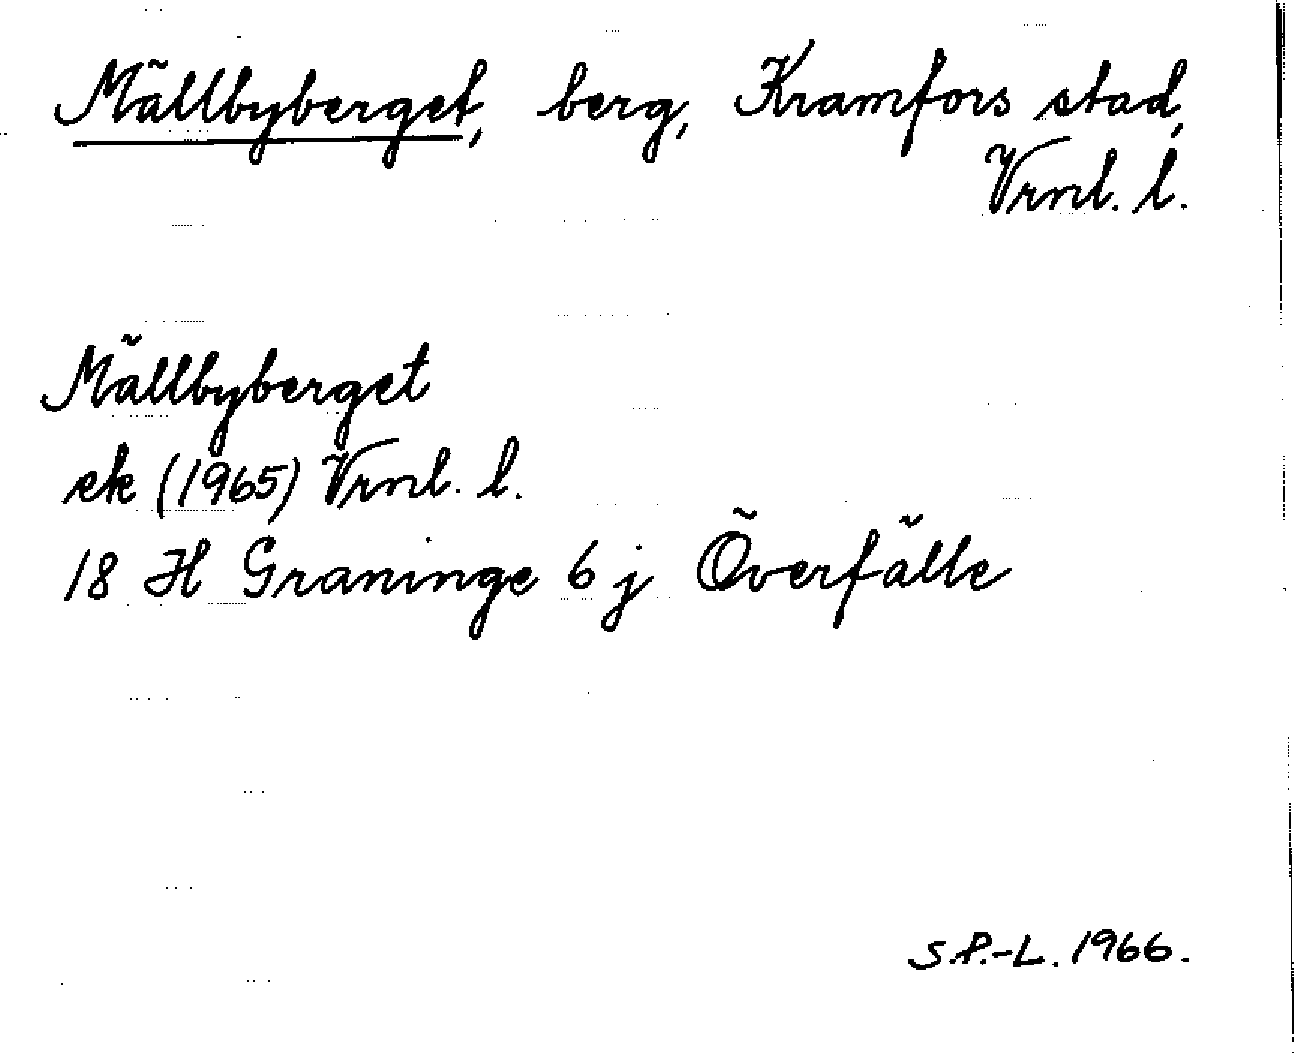 Mällbyberget, berg, Kramfors stad,
Vrnl. l.
Mällbyberget
ek (1965) Vrnl. l.
18 H Graninge 6 j Överfälle
S.P.-L. 1966.